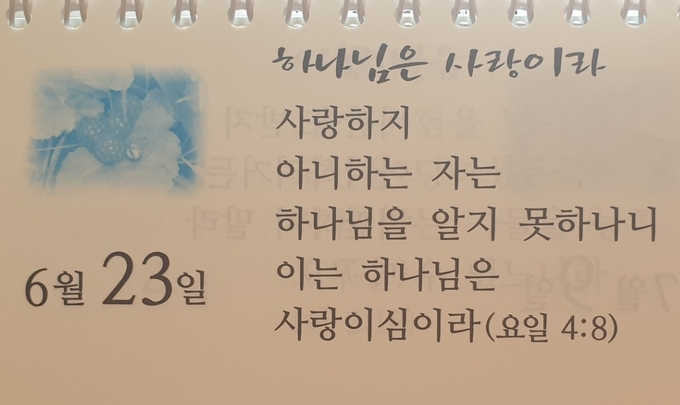 하나님은 사랑이라
사랑하지
아니하는 자는
하나님을 알지 못하나니
이는 하나님은
사랑이심이라(요일 4:8)
6월 23일